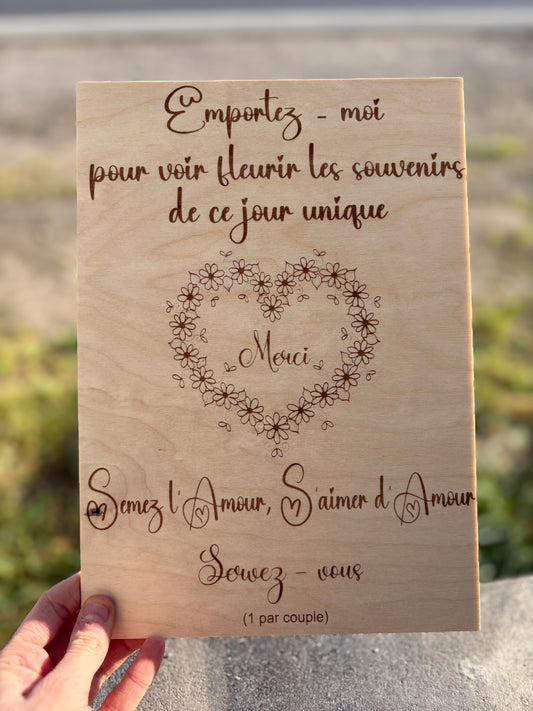 Emportez - moi
pour voir fleurir les souvenirs
de ce jour unique
Merci
Semez l'Amour, S'aimer d'Amour
Servez - vous
(1 par couple)